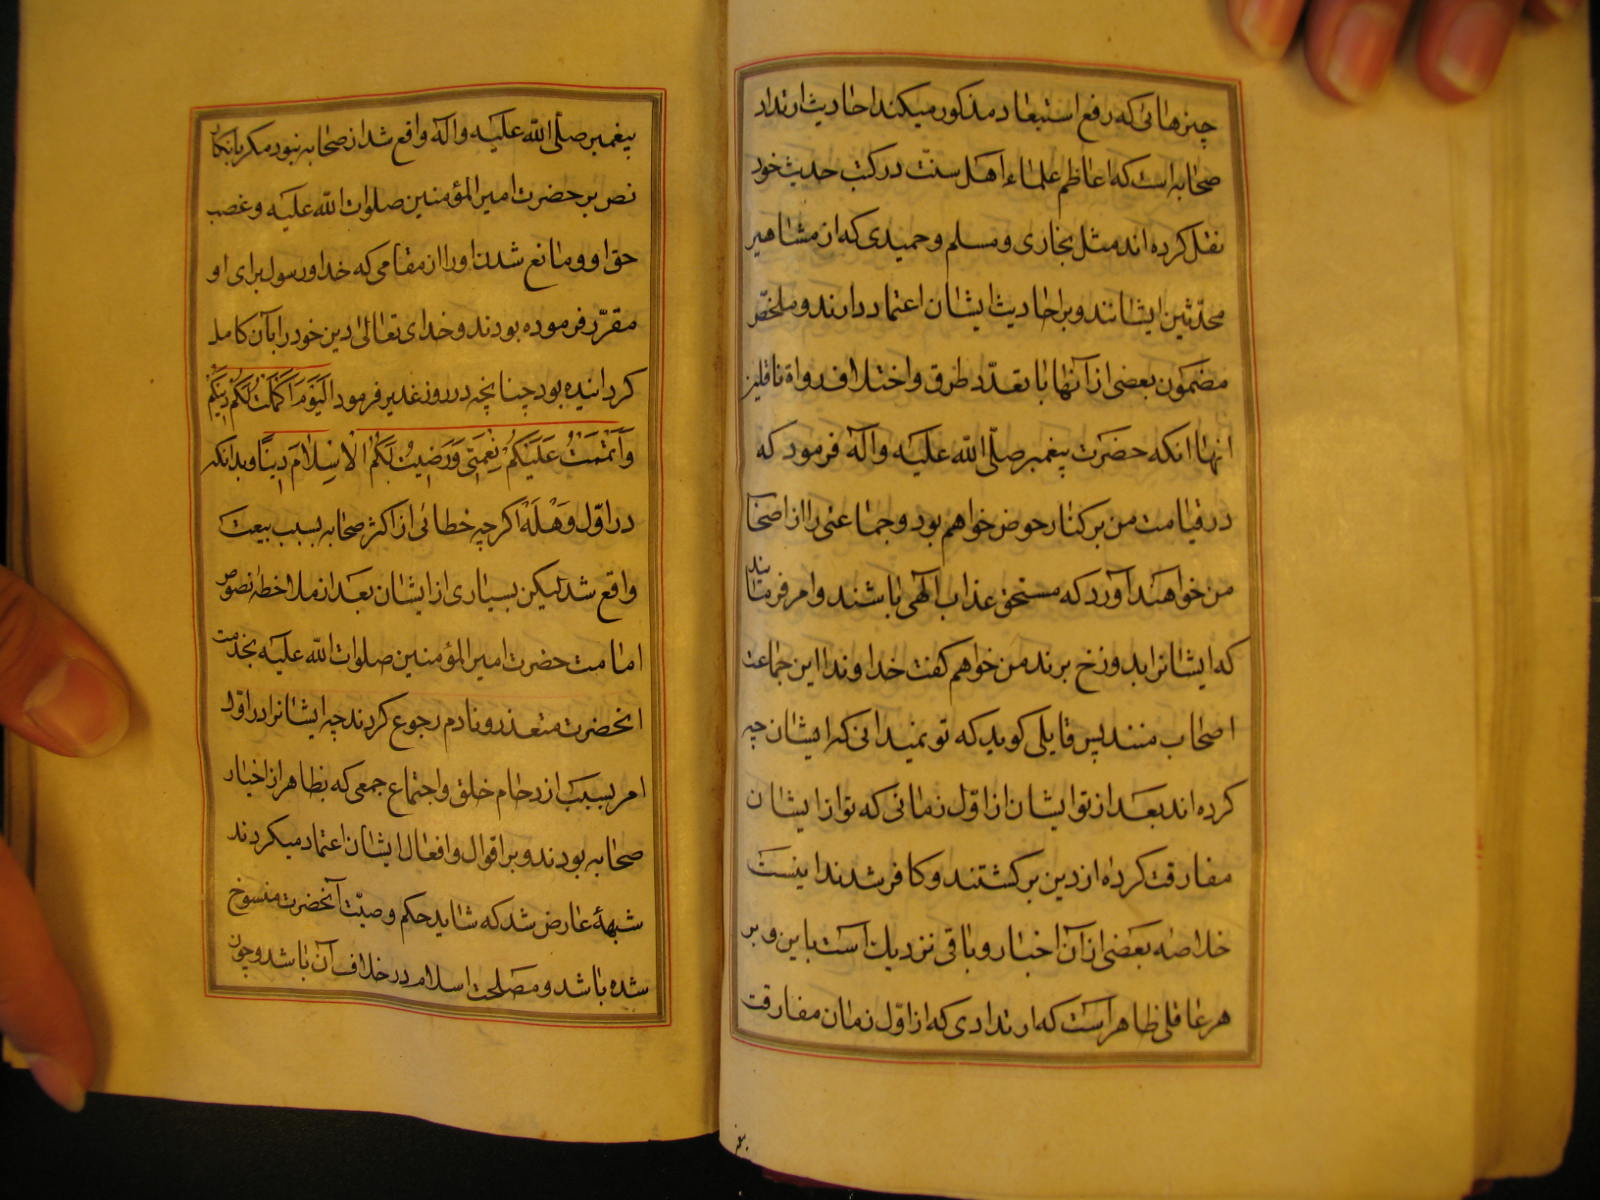 چیزهائی که رفع استبعاد مذکور میکند احادیث ارتداد
صحابه است که اعاظم علماء اهل سنّت در کتب حدیث خود
نقل کرده اند مثل بخاری و مسلم و حمیدی که از مشاهیر
محدّثین ایشانند و بر احادیث ایشان اعتماد دارند و ملخّص
مضمون بعضی از آنها با تعدّد طرق و اختلاف رواة ناقلین
انها انکه حضرت پیغمبر صلّی الله علیه واله فرمود که
در قیامت من بر کنار حوض خواهم بود و جماعتی را از اصحاب
من خواهند آورد که مستحق عذاب الهی باشند و امر فرمایند
که ایشانرا بدوزخ برند من خواهم کفت خداوندا این جماعت
اصحاب منند پس قایلی کوید که تو نمیدانی که ایشان چه
کرده اند بعد از تو ایشان از اوّل زمانی که تو از ایشان
مفارقت کرده از دین برکشتند و کافر شدند اینست
خلاصه بعضی از آن اخبار و باقی نزدیك است باین و بر
هر عاقلی ظاهر است که ارتدادی که از اوّل زمان مفارقت
پیغمبر صلّی الله علیه واله واقع شد از صحابه نبود مکر بانکار
نص بر حضرت امیر المؤمنین صلوات الله علیه و غصب
حق او و مانع شدن او را از مقامی که خدا و رسول برای او
مقرّر فرموده بودند و خدای تعالی دین خود را بآن کامل
کردانیده بود چنانچه در روز غدیر فرمود اَلیَومَ اَکمَلتُ لَکُم دینَکُم
وَاَتمَمتُ عَلَیکُم نِعمَتی وَرَضیتُ لَکُمُ الاِسلامَ دیناً و بدانکه
در اوّل وَهْلَه اکرچه خطائی از اکثر صحابه بسبب بیعت
واقع شد لیکن بسیاری از ایشان بعد از ملاحظه نصوص
امامت حضرت امیر المؤمنین صلوات الله علیه بخدمت
انحضرت متعذر و نادم رجوع کردند چه ایشانرا در اوّل
امر بسبب ازدحام خلق و اجتماع جمعی که بظاهر از اخیار
صحابه بودند و بر اقوال و افعال ایشان اعتماد میکردند
شبههٔ عارض شد که شاید حکم وصیّت آنحضرت منسوخ
شده باشد و مصلحت اسلام در خلاف آن باشد و چون